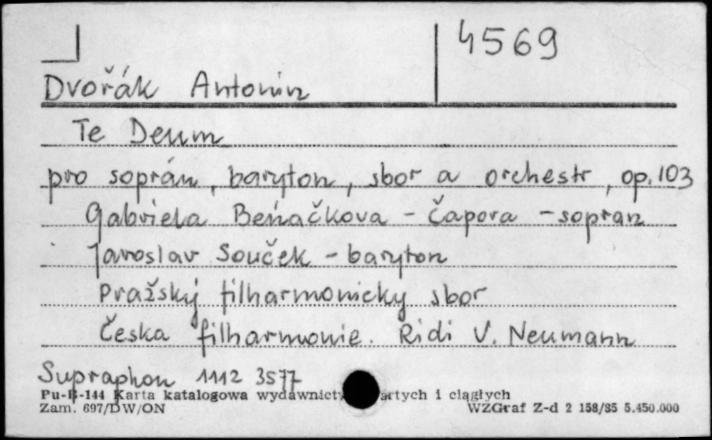 4569
Dvořák Antonin
Te Deum
pro soprán, baryton, sbor a orchestr, op. 103
Gabriela Beňačkova - Čapova - sopran
Jaroslav Souček - baryton
Pražský filharmonicky sbor
Česka filharmonie. Ridi V. Neumann
Supraphon 1112 3577
Pu-B-144 Karta katalogowa wydawnict artych i ciągłych
Zam. 697/DW/ON WZGraf Z-d 2 158/85 5.450.000